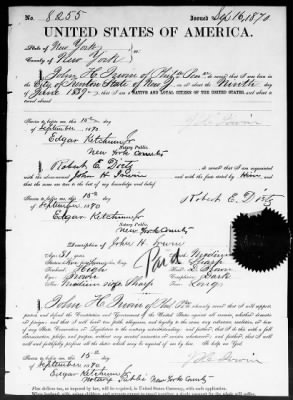 No. 8255 Issued Sep 16, 1870
UNITED STATES OF AMERICA.
State of New York
County of New York
I, John H. Irwin of Phila Penn do swear that I was born in the
City of Trenton State of New J. on the Ninth
day of June 1839; that I am a NATIVE AND LOYAL CITIZEN OF THE UNITED STATES, and about to
travel abroad
Sworn to before me this 15th day
of September 1870
Edgar Ketchum Jr
Notary Public
New York County
I, Robert C. Dorty, do swear that I am acquainted
with the above named John H. Irwin and with the facts stated by him, and
that the same are true to the best of my knowledge and belief.
Robert C. Dorty
Sworn to before me this 15th day
of September 1870
Edgar Ketchum Jr
Notary Public
New York County
Description of John H. Irwin
Age: 31 years
Stature:
Forehead: High
Eyes: Brown
Nose: Medium size Sharp
Mouth: Medium
Chin: Sharp
Hair: D. Brown
Complexion: Dark
Face: Long
Paid
I, John H. Irwin of Phil Pa do solemnly swear that I will support,
protect and defend the Constitution and Government of the United States against all enemies, whether domestic
or foreign; and that I will bear true faith, allegiance, and loyalty to the same, any ordinance, resolution, or law
of any State, Convention, or Legislature to the contrary notwithstanding; and further, that I do this with a full
determination, pledge, and purpose, without any mental reservation or evasion whatsoever; and further, that I will
well and faithfully perform all the duties which may be required of me by law. So help me God.
J H Irwin
Sworn to before me this 15th day
of September 1870
Edgar Ketchum Jr
Notary Public New York County